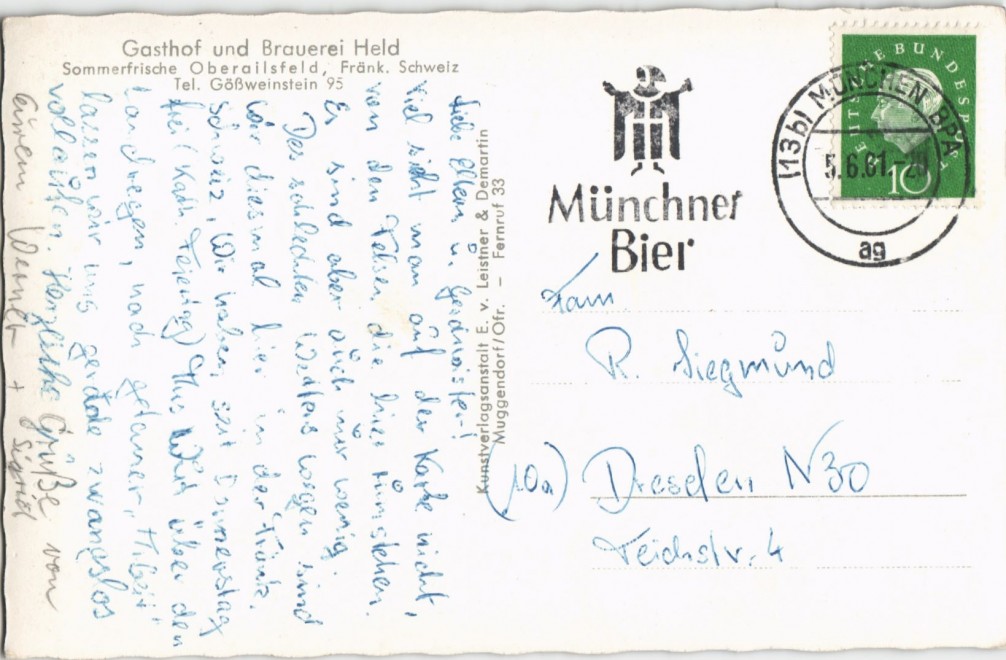 Gasthof und Brauerei Held
Sommerfrische Oberailsfeld, Fränk. Schweiz
Tel. Gößweinstein 95
Liebe Eltern u. Geschwister!
Viel sieht man auf der Karte nicht,
von den Felsen die hier rumstehen.
Es sind aber auch nur wenig.
Des schlechten Wetters wegen sind
wir diesmal hier in der Fränk.
Schweiz. Wir haben seit Donnerstag
frei (Kath. Feiertag) Aus Wut über den
Landregen, nach getaner Arbeit,
lassen wir uns gerade zwanglos
vollaufen. Herzliche Grüße von
Eurem Werner + Sigrid
Kunstverlagsanstalt E. v. Leistner & Demartin
Muggendorf/Ofr. – Fernruf 33
Münchner
Bier
DEUTSCHE BUNDESPOST
10
(13b) MÜNCHEN BPA
5.6.61.-20
ag
Fam
R. Siegmund
(10a) Dresden N30
Teichstr. 4